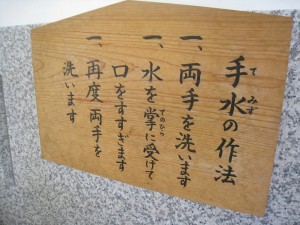 手水の作法
一、両手を洗います
一、水を掌に受けて
口をすすぎます
一、再度両手を
洗います
てみず
てのひら